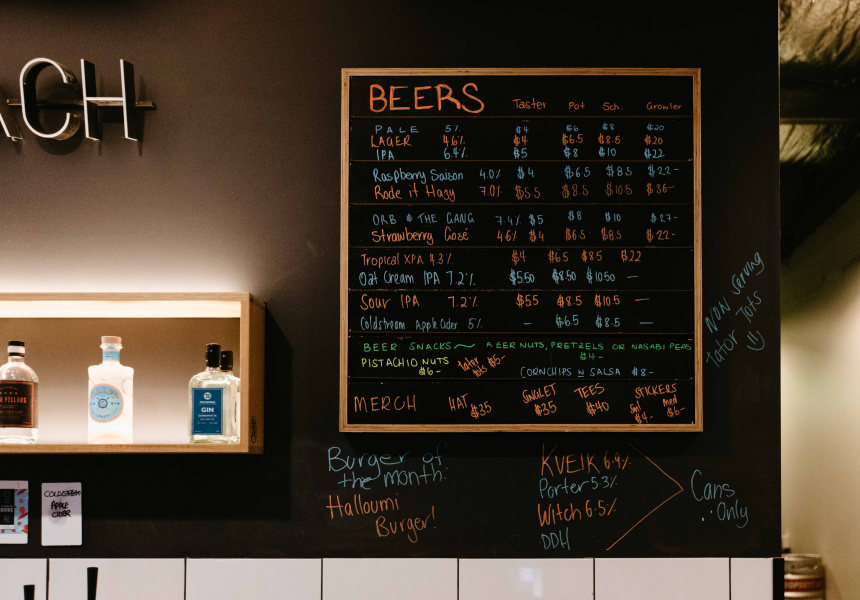 ACH
BEERS Taster Pot Sch. Growler
PALE 5% $4 $6 $8 $20
LAGER 4.6% $4 $6.5 $8.5 $20
IPA 6.4% $5 $8 $10 $22
Raspberry Saison 4.0% $4 $6.5 $8.5 $22-
Rode it Hazy 7.0% $5.5 $8.5 $10.5 $36-
ORB & THE GANG 7.4% $5 $8 $10 $27-
Strawberry Gosé 4.6% $4 $6.5 $8.5 $22-
Tropical XPA 4.3% $4 $6.5 $8.5 $22
Oat Cream IPA 7.2% $5.50 $8.50 $10.50 —
Sour IPA 7.2% $5.5 $8.5 $10.5 —
Coldstream Apple Cider 5% — $6.5 $8.5 —
BEER SNACKS~ BEER NUTS, PRETZELS OR WASABI PEAS
$4-
PISTACHIO NUTS
$6-
tator tots $5-
CORNCHIPS N SALSA $8-
MERCH HAT $35 SINGLET $35 TEES $40 STICKERS
Sml $4- med $6-
NOW Serving
Tator Tots
Burger of
the month:
Halloumi
Burger!
KVEIK 6.9%
Porter 5.3%
Witch 6.5%
DDH
Cans
Only
GIN
COLDSTREAM
APPLE
CIDER